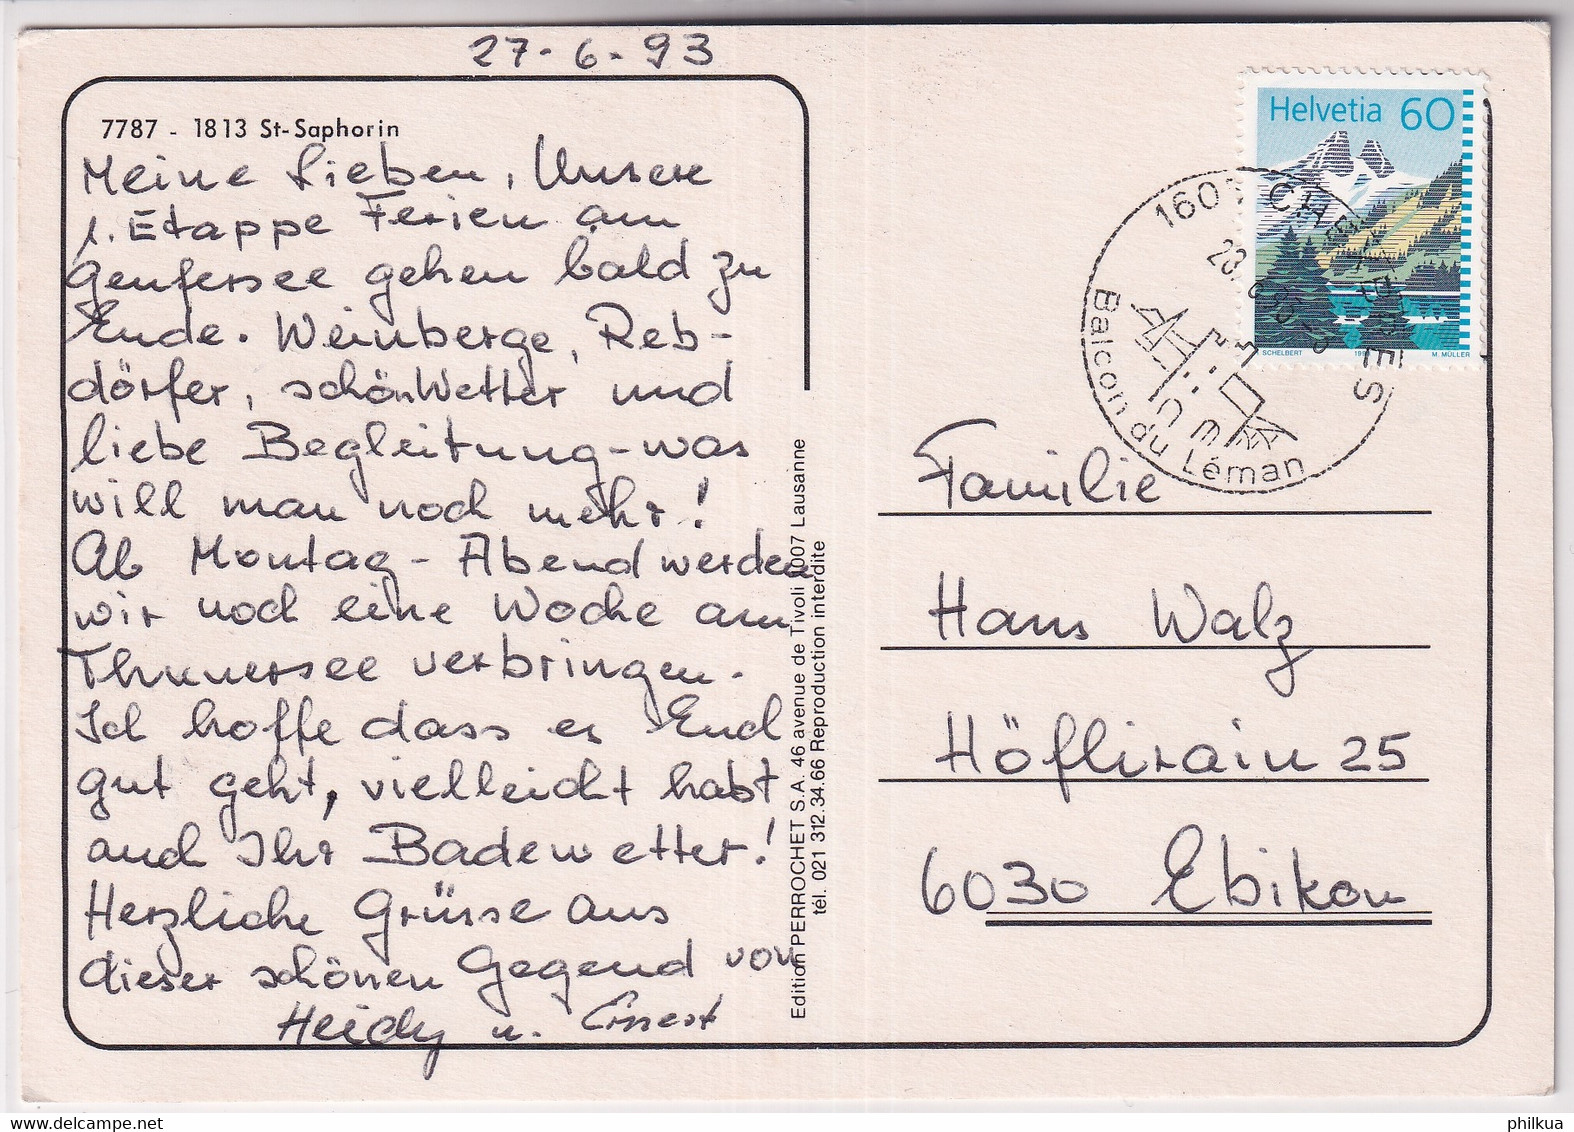 27.6.93
7787 - 1813 St-Saphorin
Meine Lieben, Unsere
1. Etappe Ferien am
Genfersee gehen bald zu
Ende. Weinberge, Reb-
dörfer, schön Wetter und
liebe Begleitung - was
will man noch mehr!
Ab Montag - Abend werden
wir noch eine Woche am
Thunersee verbringen.
Ich hoffe dass es Euch
gut geht, vielleicht habt
auch Ihr Badewetter!
Herzliche Grüsse aus
dieser schönen Gegend von
Heidy u. Ernest
Edition PERROCHET S.A. 46 avenue de Tivoli 1007 Lausanne
tél. 021 312.34.66 Reproduction interdite
Helvetia 60
SCHELBERT M. MÜLLER
1605 CHEXBRES
Balcon du Léman
Familie
Hans Walz
Höflirain 25
6030 Ebikon
philkua